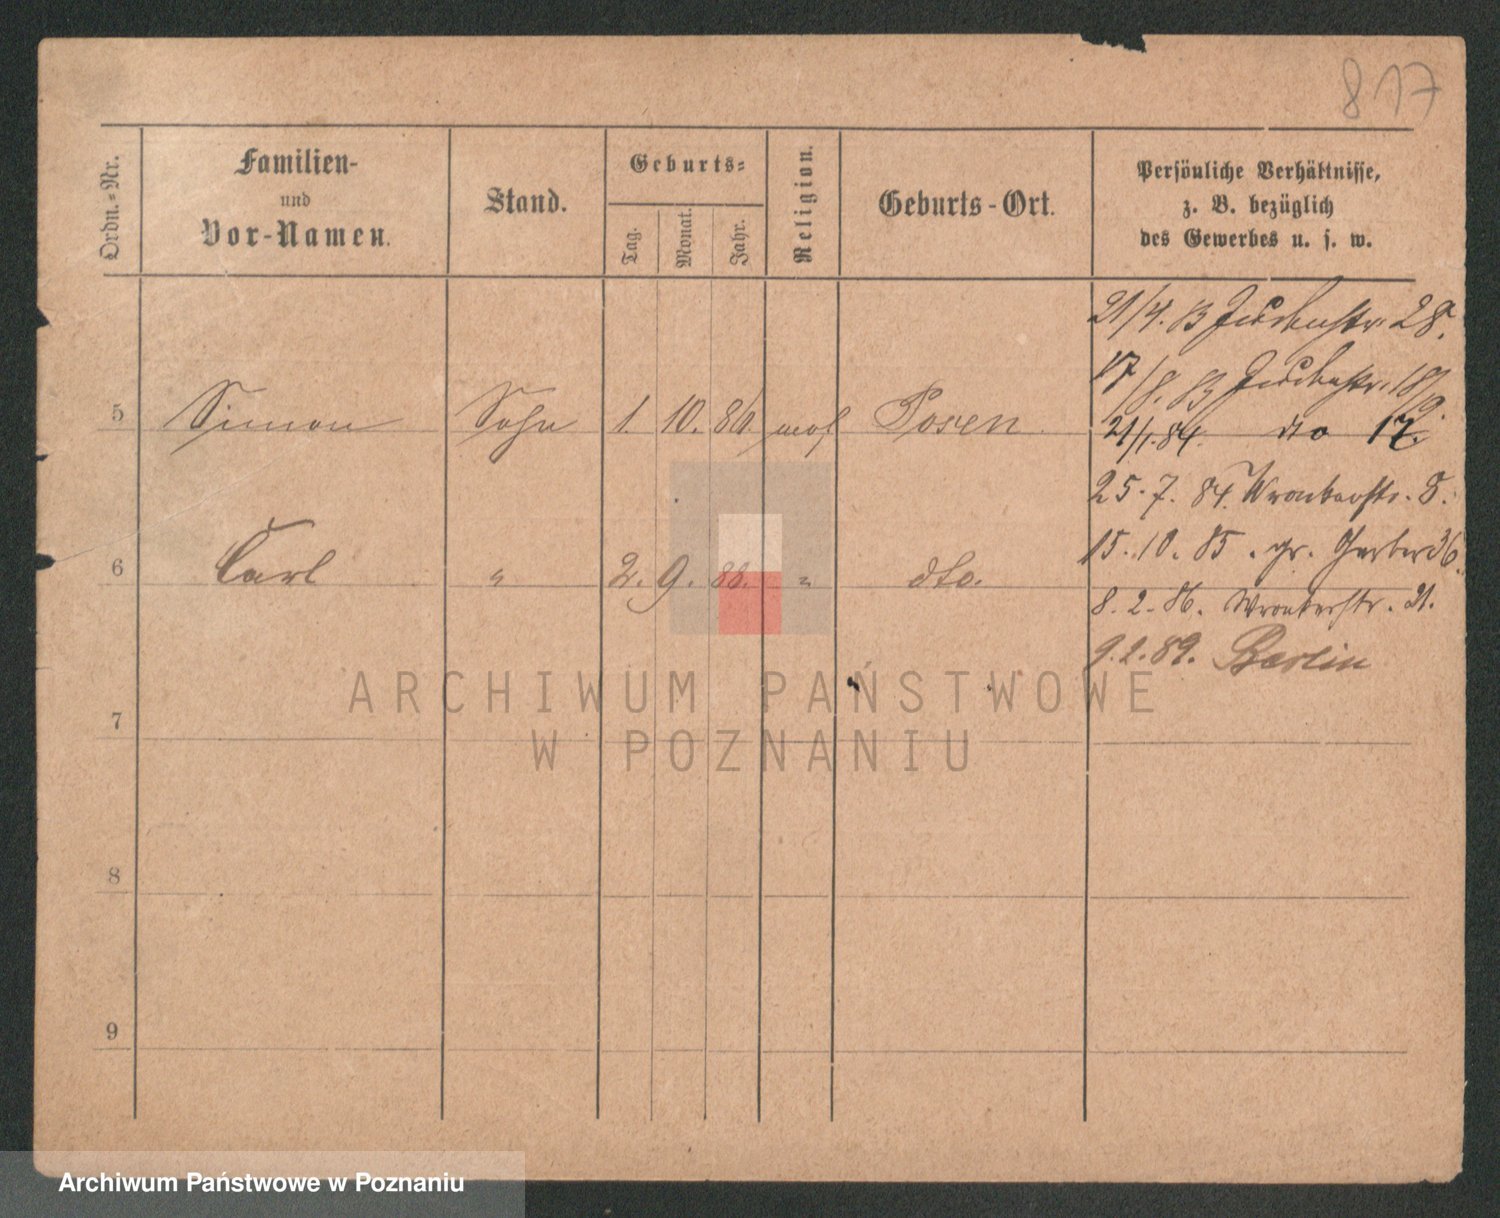 817
Ordn.-Nr.
Familien-
und
Vor-Namen.
Stand.
Geburts-
Tag.
Monat.
Jahr.
Religion.
Geburts-Ort.
Persönliche Verhältnisse,
z. B. bezüglich
des Gewerbes u. s. w.
21/4. 83 Judenstr. 28.
17/8. 83 Judenstr. 18/9.
5 Simon Sohn 1. 10. 80. mos Posen
21/1. 84. dto 17.
25. 7. 84. Wronkerstr. 8.
15. 10. 85. gr. Gerber 36.
6 Carl " 2. 9. 88. " dto.
8. 2. 86. Wronkerstr. 21.
9. 2. 89. Berlin
ARCHIWUM PAŃSTWOWE
W POZNANIU
7
8
9
Archiwum Państwowe w Poznaniu